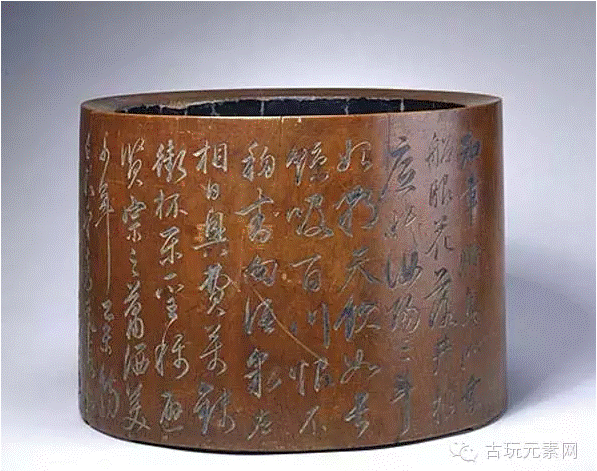 知章騎馬似乘
船眼花落井水
底眠汝陽三斗
始朝天飲如長
鯨吸百川恨不
移封向酒泉左
相日興費萬錢
銜杯樂聖稱避
賢宗之蕭洒美
少年舉觴
古玩元素网